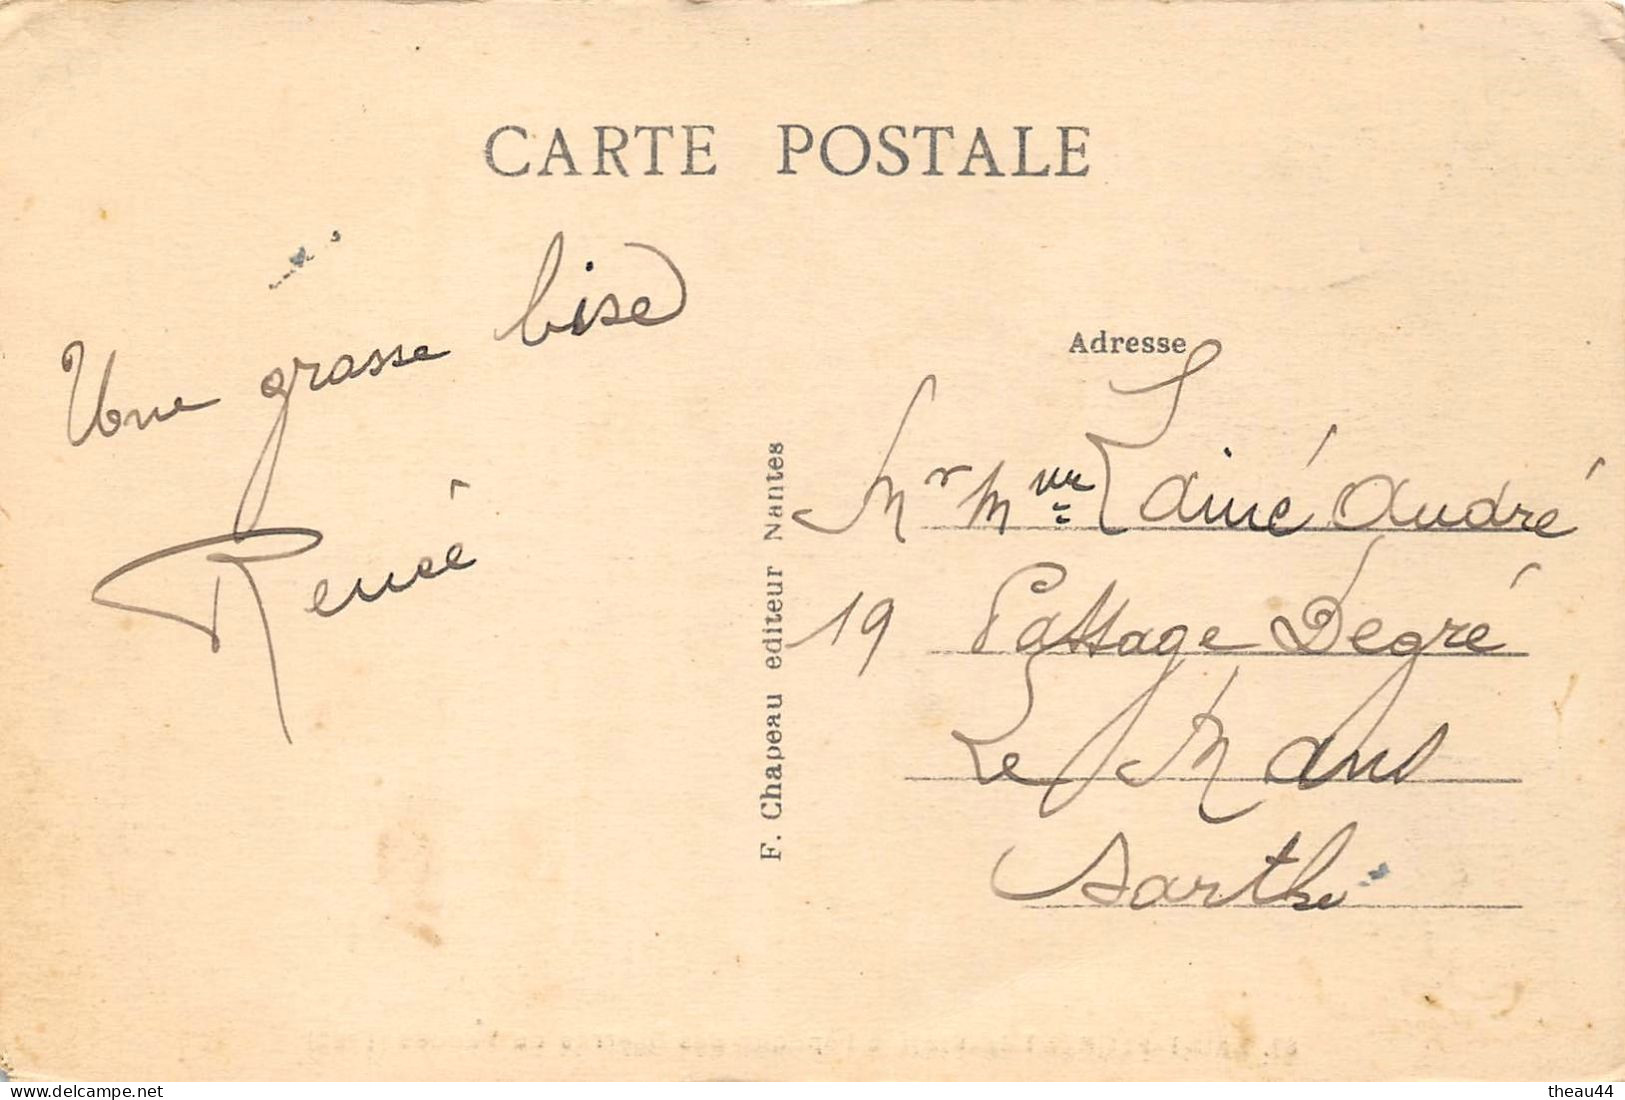 CARTE POSTALE
Une grasse bise
Renée
F. Chapeau editeur Nantes
Adresse
Mr Mme Lainé André
19 Passage Degré
Le Mans
Sarthe
theau44